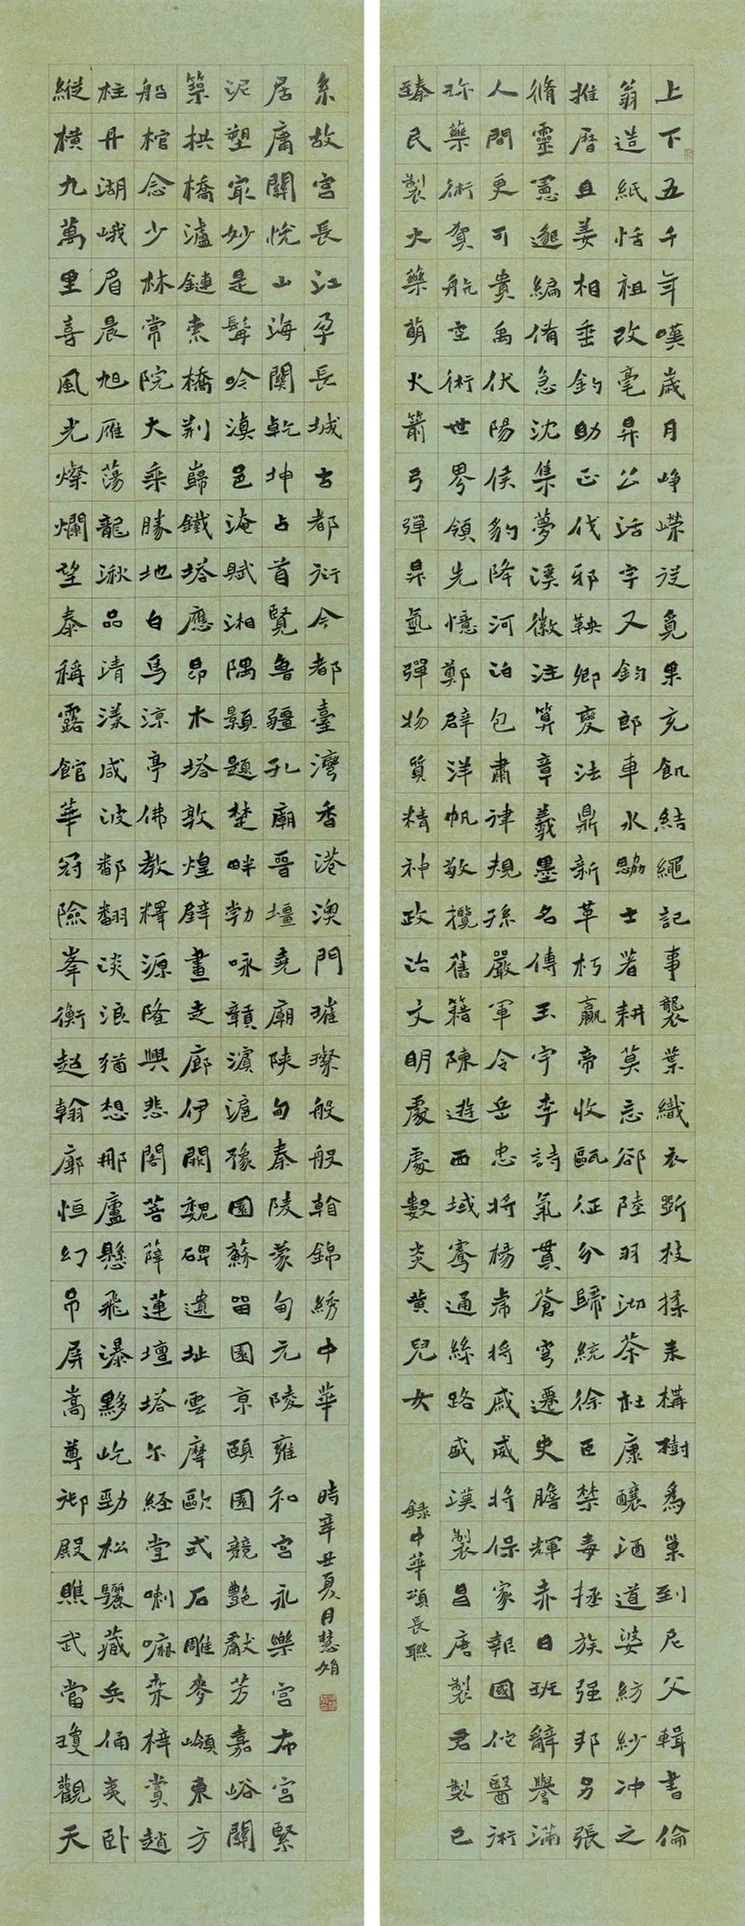 上下五千年嘆歲月崢嶸從覓果充飢結繩記事襲葉織衣斲枝揉耒構樹為巢到尼父輯書倫
翁造紙恬祖改毫昇公活字又鈞郎車水勰士著耕莫忘郤陸羽沏茶杜康釀酒道婆紡紗沖之
推曆且姜相垂釣助正伐邪鞅卿變法鼎新革朽嬴帝收甌征分歸統徐臣禁毒拯族强邦另張
脩靈憲邈編俻急沈集夢溪徽注算章羲墨名傳玉宇李詩氣貫蒼穹遷史膽輝赤日班辭譽滿
人間更可貴禹伏陽侯豹降河泊包肅律規孫嚴軍令岳忠將楊虎將戚威將保家報國佗醫術
珎藥術賀航空術世界領先憶鄭辟洋帆敬攬舊籍陳遊西域騫通絲路盛漢製昌唐製君製已
臻民製火藥萌火箭弓彈昇氫彈物質精神政治文明處處數炎黃兒女
錄中華頌長聯
縱橫九萬里喜風光燦爛望泰稱露館華冠險峯衡起翰廓恒幻吊屏嵩尊御殿瞧武當瓊觀天
柱丹湖峨眉晨旭雁蕩龍湫品靖漾咸波鄱翻淡浪猶想那廬懸飛瀑黟屹勁松驪藏兵俑夷卧
船棺念少林常院大乘勝地白馬涼亭佛教釋源隆興悲閣菩薩蓮壇塔尔経堂喇嘛栾梓賞趙
築拱橋瀘鏈索橋荆歸鐵塔應昂木塔敦煌壁畫走廊伊闕魏碑遺址雲摩歐式石雕麥嶺東方
泥塑冣妙是髯吟滇邑淹賦湘隅顥題楚畔勃咏贛濱滬豫園蘇留園京頤園競艷獻芳嘉峪關
居庸關悅山海關乾坤占首覽魯疆孔廟晉壇堯廟陕旬秦陵蒙旬元陵雍和宮永樂宮布宮緊
系故宮長江孕長城古都衍今都臺灣香港澳門璀璨般般翰錦綉中華
時辛丑夏月慧娟